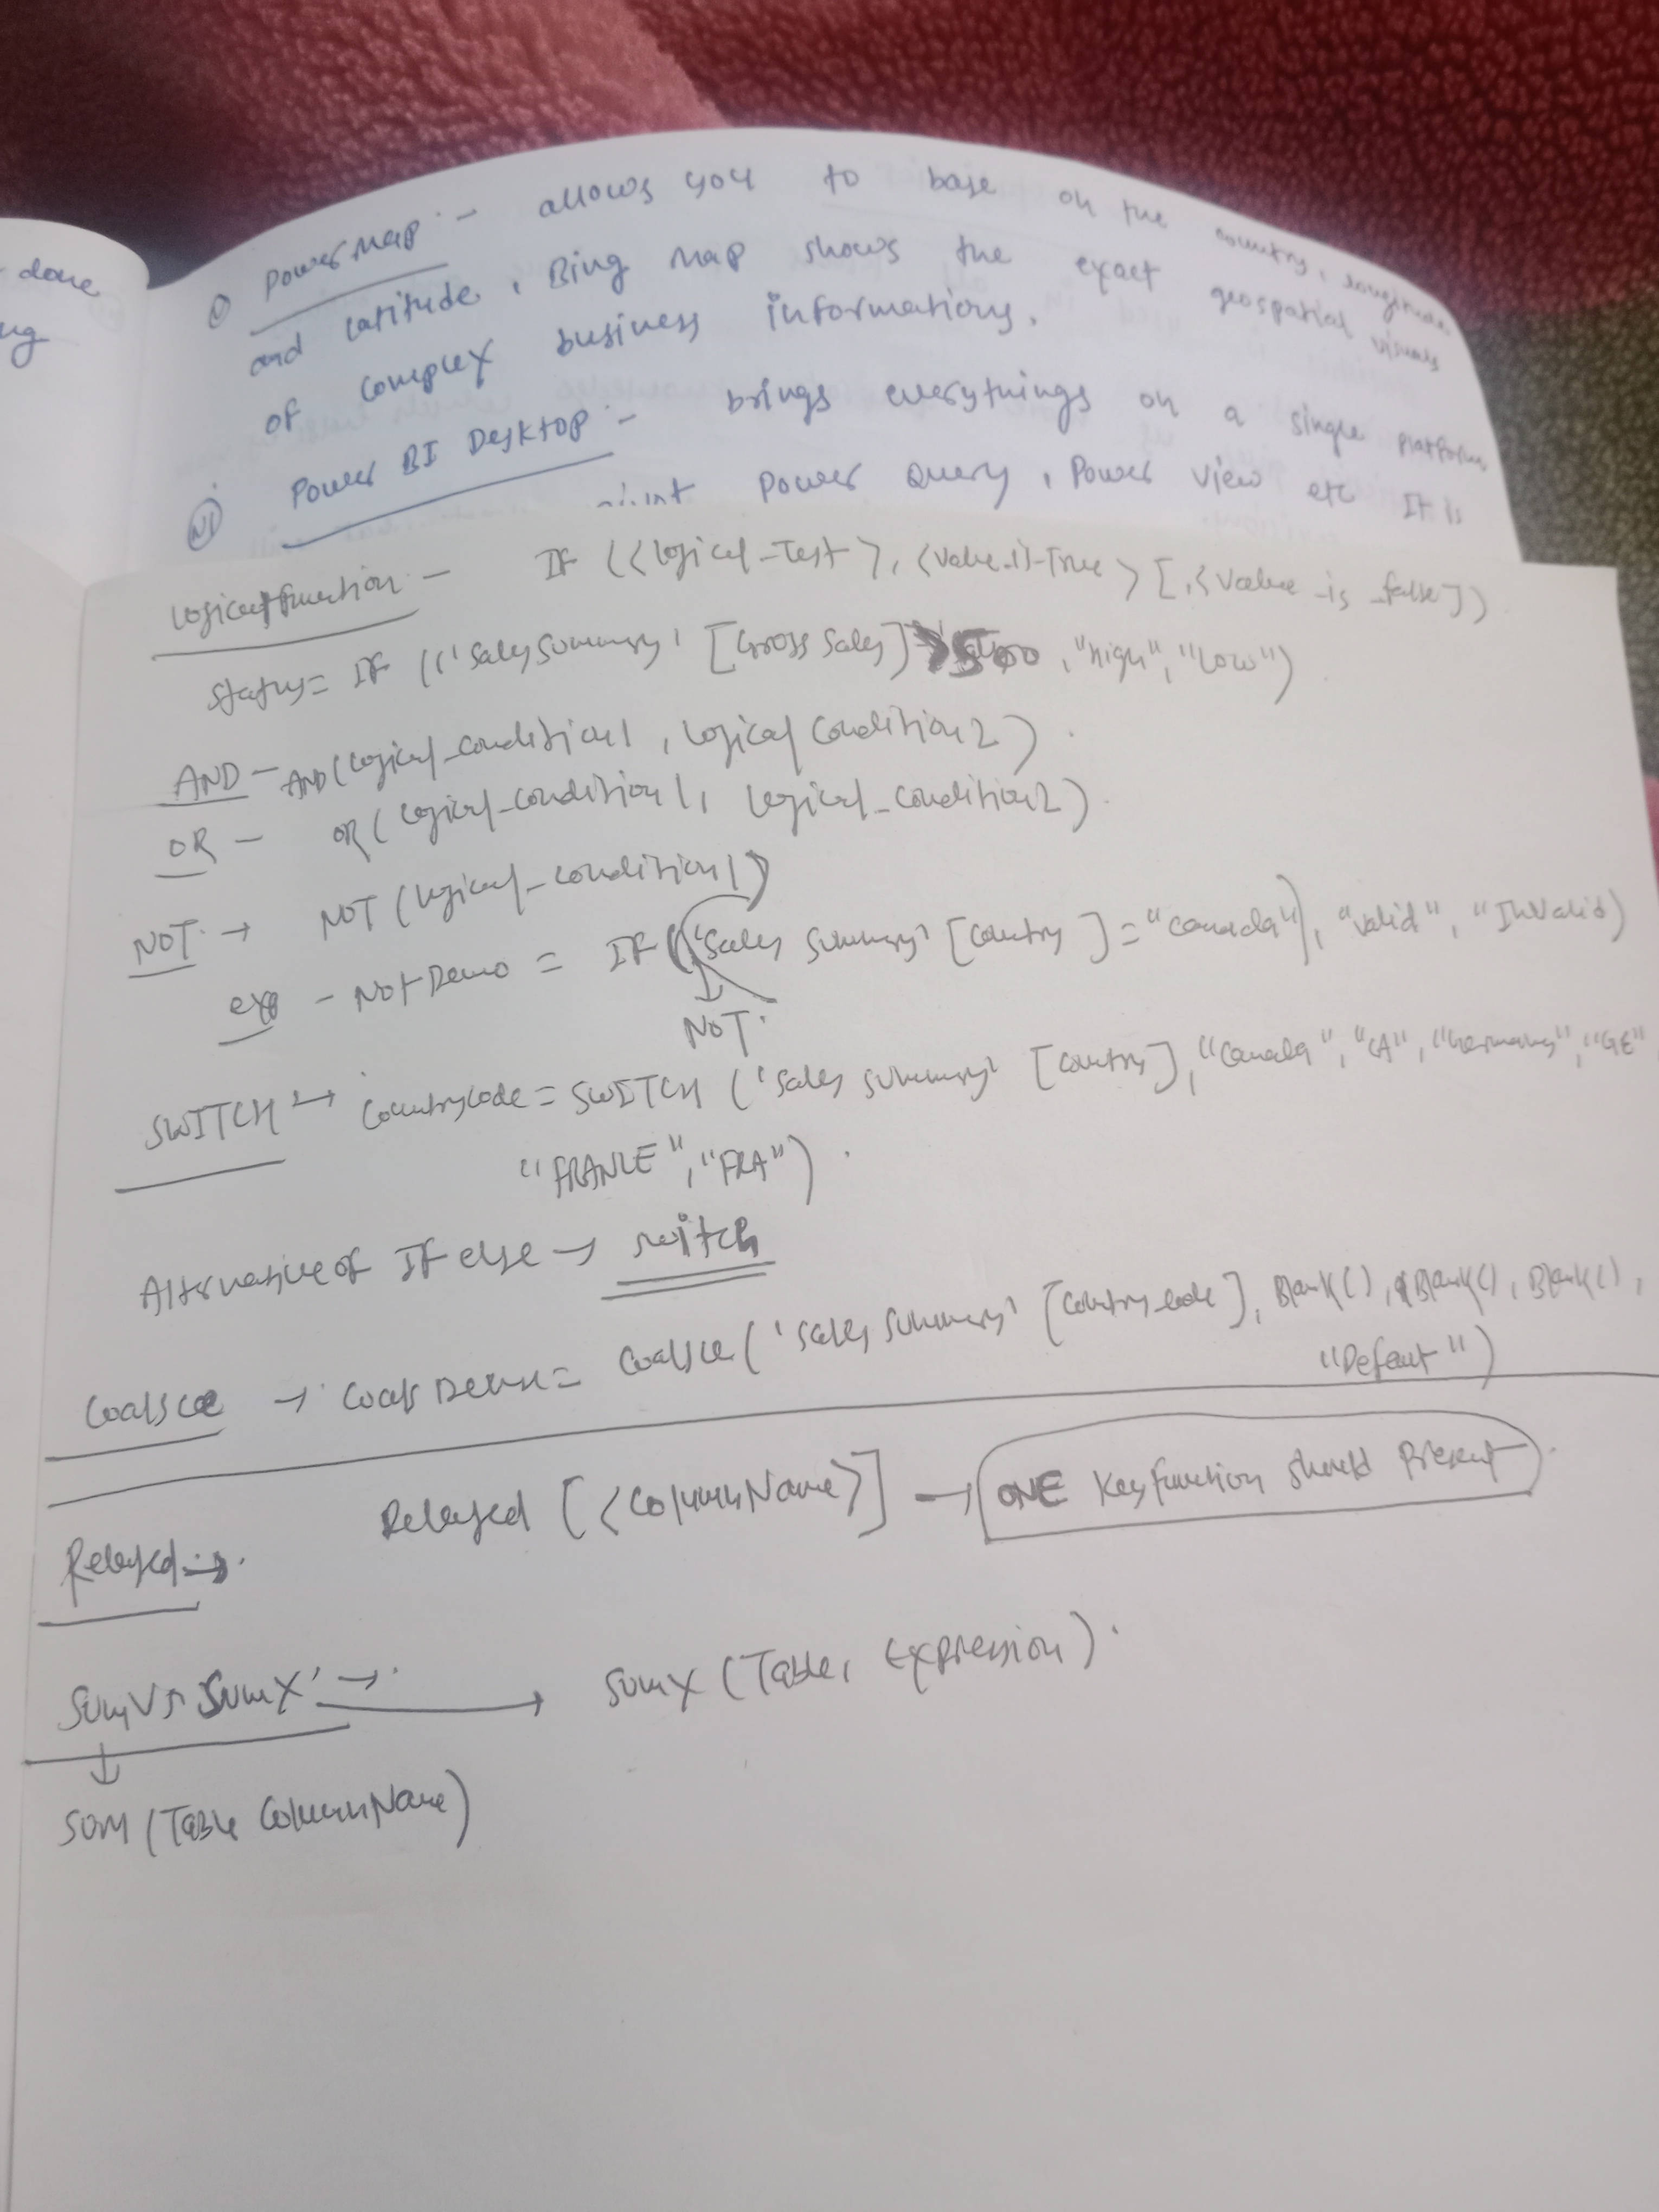 done
ng
Power Map :- allows you to base on the country, longitude
and latitude, Bing Map shows the exact geospatial visuals
of complex business informations.
VI Power BI Desktop :- brings everythings on a single platform
Power Query, Power View etc It is
Logical function :- IF (<logical_Test>, <value_is_True> [, <value_is_false])
Status = IF (('Sales Summary' [Gross Sales] >500, "High", "Low")
AND - AND (logical_condition1, logical condition2).
OR - OR (logical_condition1, logical_condition2).
NOT. → NOT (logical_condition1)
exp - Not Demo = IF (('Sales Summary' [Country] = "Canada"), "Valid", "InValid)
NOT.
SWITCH → Countrycode = SWITCH ('Sales Summary' [Country], "Canada", "CA", "Germany", "GE"
"FRANCE", "FRA").
Alternative of IF else → switch
Coalsce → Coals Demo = Coalsce ('Sales Summary' [Country code], Blank(), Blank(), Blank(),
"Default")
Related → Related [<ColumnName>] → ONE Key function should Present.
Sum Vs SumX → SumX (Table, Expression).
SUM (Table ColumnName)